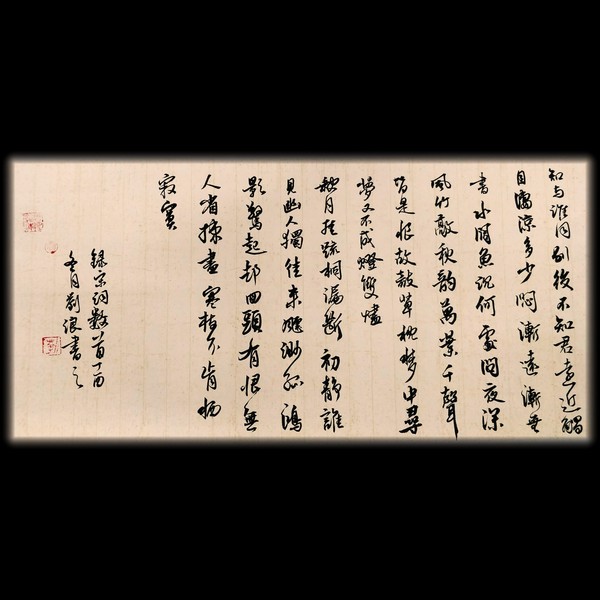 知与誰同别後不知君遠近觸
目淒涼多少悶漸遠漸無
書水闊魚沉何處問夜深
風竹敲秋韻萬葉千聲
皆是恨故敧單枕夢中尋
夢又不成燈雙燼
缺月挂疏桐漏斷初静誰
見幽人獨往來縹緲孤鴻
影驚起却回頭有恨無
人省揀盡寒枝不肯栖
寂寞
錄宋词數首丁酉
冬月劉浪書之